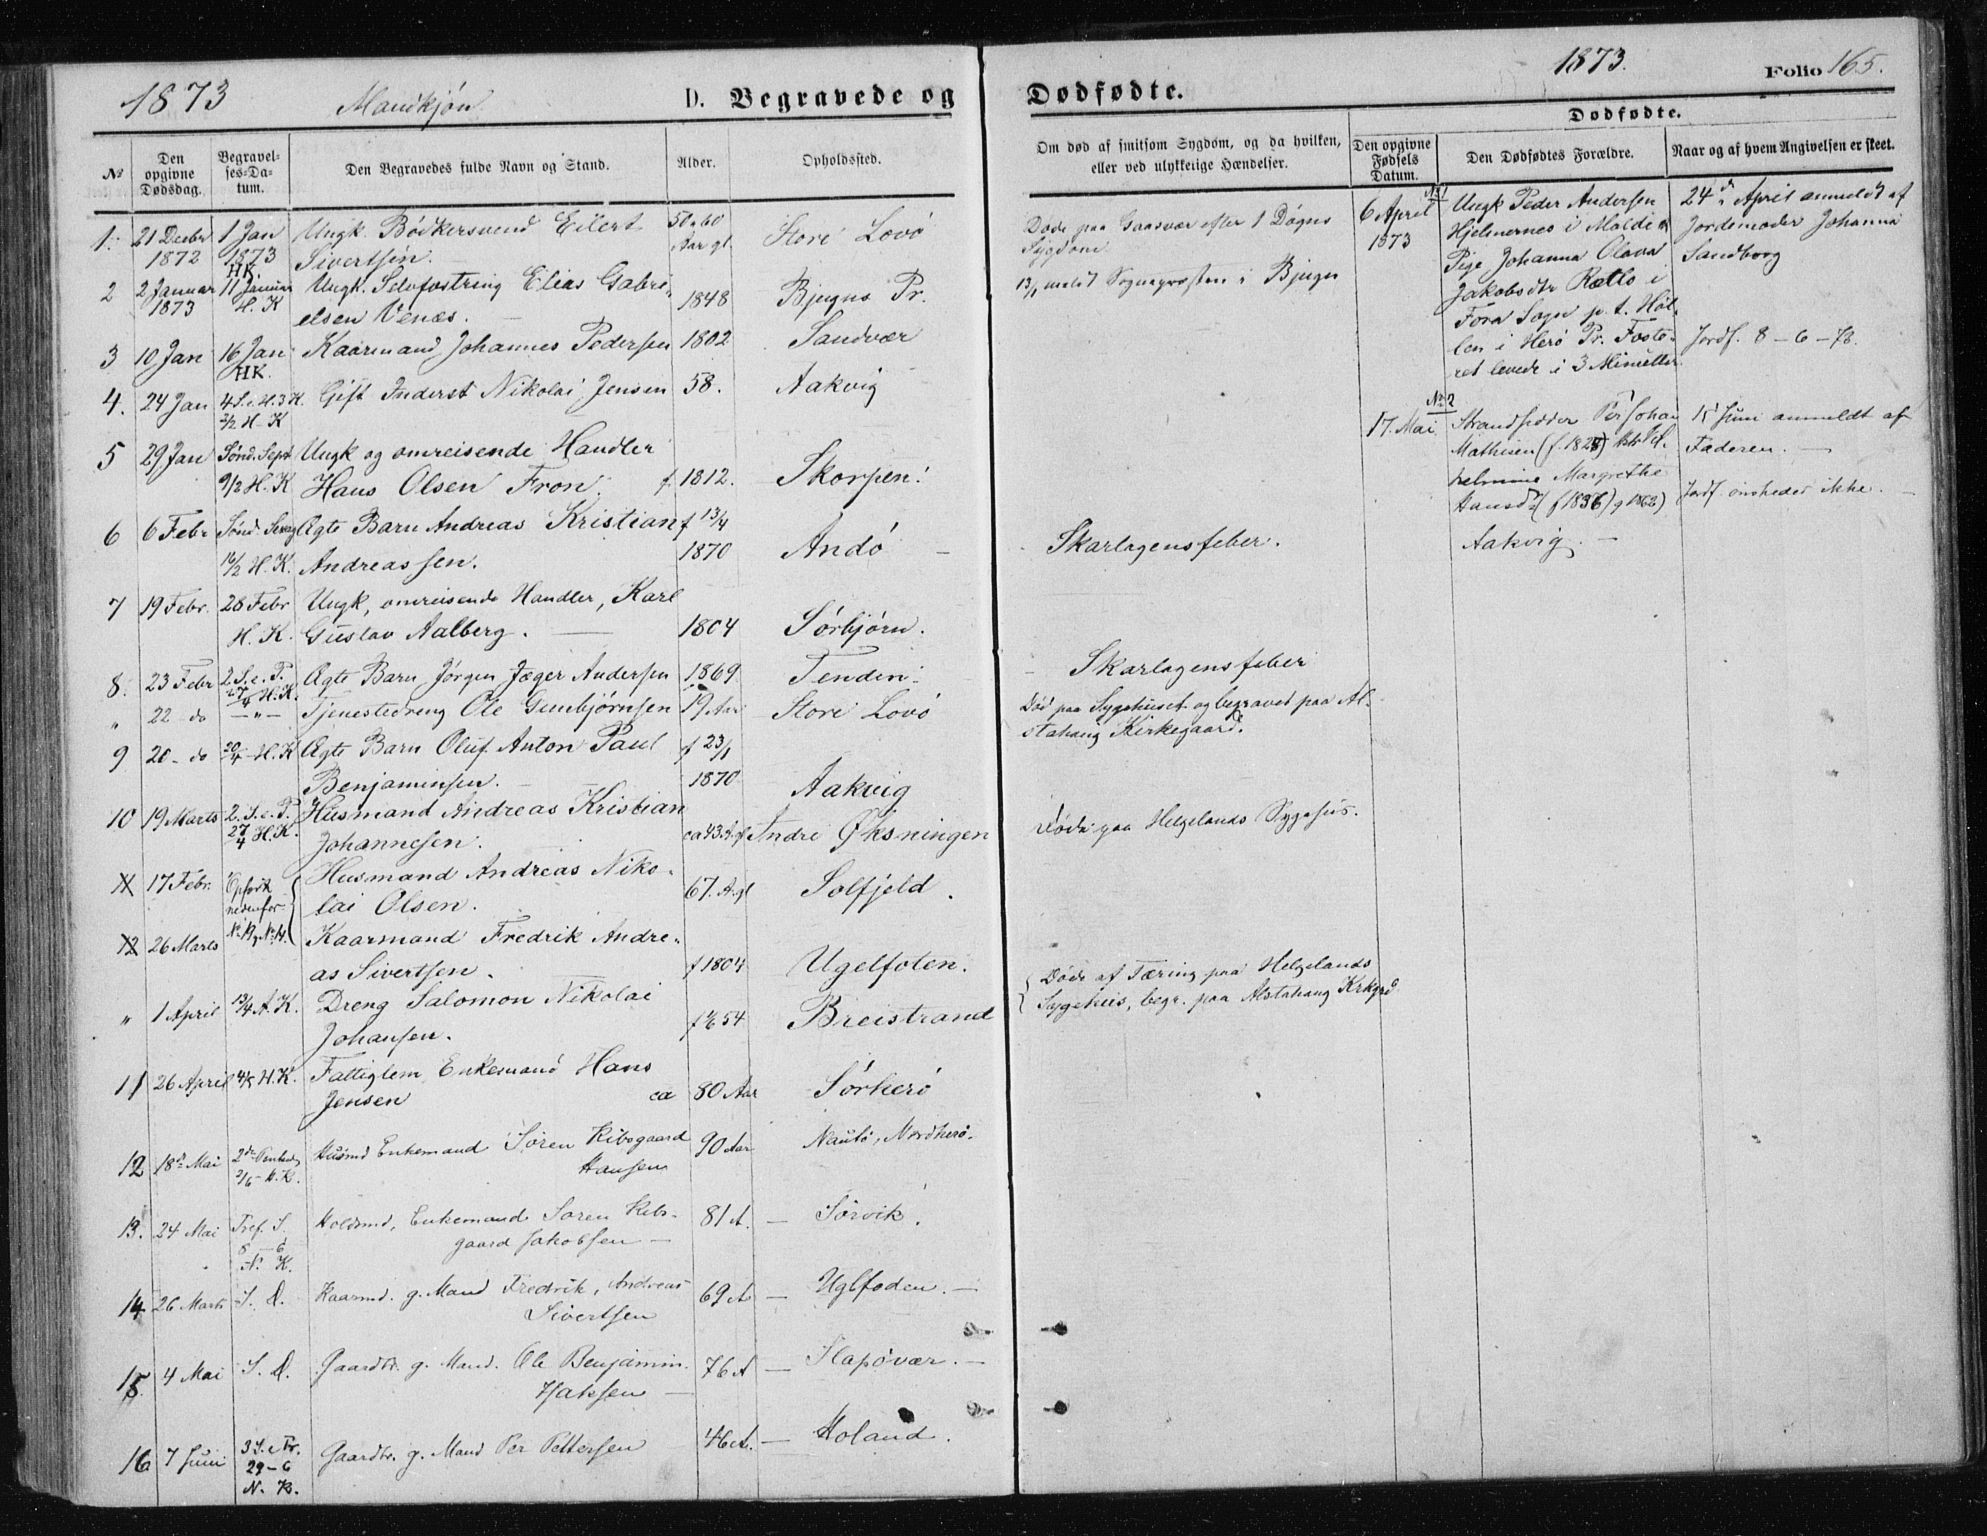 1873 Mandkjøn D. Begravede og Dødfødte. 1873. Folio 165.
Dødfødte.
№ Den opgivne Dødsdag. Begravelses-Datum. Den Begravedes fulde Navn og Stand. Alder. Opholdssted. Om død af smitsom Sygdom, og da hvilken, eller ved ulykkelige Hændelser. Den opgivne Fødsels Datum. Den Dødfødtes Forældre. Naar og af hvem Angivelsen er skeet.
1. 21 Decbr 1 Jan Ungk. Bødkersvend Eilert 50 a 60 Store Lovö
1872 1873 Sivertsen. Aar gl.
HK.
Döde paa Gaasvær efter 1 Døgns
Sygdom
2 2 Januar 11 Januar Ungk. Selvfostring Elias Gabri-
1873 H. K elsen Venæs. 1848 Bjugns Pr.
13/1 meldt Sognepræsten i Bjugn
3 10 Jan 16 Jan Kaarmand Johannes Pedersen 1802 Sandvær
HK.
4. 24 Jan 4 S. e. H. 3 K. Gift Inderst Nikolai Jensen 58. Aakvig
2/2 H. K
5 29 Jan Sönd. Sept Ungk og omreisende Handler
9/2 H. K Hans Olsen Fron. f. 1812. Skorpen.
6 6 Febr Sönd. Sexag Ægte Barn Andreas Kristian f 13/4
16/2 H. K. Andreassen. 1870 Andö Skarlagensfeber.
7 19 Febr. 28 Febr Ungk, omreisende Handler, Karl
H. K. Gustav Aalberg. 1804 Sörbjörn.
8. 23 Febr 2. S. e. P. Ægte Barn Jörgen Jæger Andersen 1869 Tenden Skarlagensfeber
27/4 H. K.
" 22 do — " — Tjenestedreng Ole Gunbjörnsen 19 Aar Store Lovö Död paa Sygehuset og begravet paa Al-
stahaug Kirkegaard.
9 20 - do 20/4 H. K Ægte Barn Oluf Anton Paul f 23/1
Benjaminsen. 1870 Aakvig
10 19 Marts 2. S. e. P. Husmand Andreas Kristian
27/4 H. K. Johannesen. ca 43. A. gl Andre Øksningen Döde paa Helgelands Sygehus.
11 17 Febr. Opfört Husmand Andreas Niko-
nedenfor lai Olsen. 67. A. gl Solfjeld.
12 26 Marts Kaarmand Fredrik Andre-
as Sivertsen. f 1804 Ugelfoten.
" 1 April 13/4 A. K. Dreng Salomon Nikolai
Johansen. 54 Breistrand
Döde af Tæring paa Helgelands
Sygehus, begr. paa Alstahaug Krkgrd
11 26 April 4/5 H. K. Fattiglem, Enkemand Hans
Jensen ca 80 Aar Sörherö
12 18de Mai 2den Pintsed Husmd Enkemand Sören Kibsgaard 90 Aar Nautö, Nordherö.
2/6 H. K. Hansen
13. 24 Mai Tref. S. Holdsmd, Enkemand Sören Kibs- 81 A. — Sörvik.
8 – 6 gaard Jakobsen —
N. K.
14 26 Marts S. D. Kaarmd. g. Mand Fredrik, Andreas 69 A — Uglfoden. —
Sivertsen
15. 4 Mai S. D. Gaardbr. g. Mand. Ole Benjamin 76 A — Slapövær. —
16 7 Juni 3 S. e. Tr. Gaardbr. g. Mand Per Pettersen 46 A. — Holand.
29 – 6
N. K.
№ 1
6 April 1873
Ungk Peder Andersen
Hjelmernes i Molde &
Pige Johanna Olava
Jakobsdtr Rætto i
Fora Sogn p. t. Höl-
len i Herö Pr. Foste-
ret levede i 3 Minutter
24de April anmeldt af
Jordemoder Johanna
Sandborg
Jordf. 8 – 6 – 73.
№ 2
17. Mai
Strandsidder Per Johan
Mathisen (f. 1828) Vil-
helmine Margrethe
Hansdr (f 1836) g 1862)
Aakvig. —
15 Juni anmeldt af
Faderen. —
Jordf. önskedes ikke. —